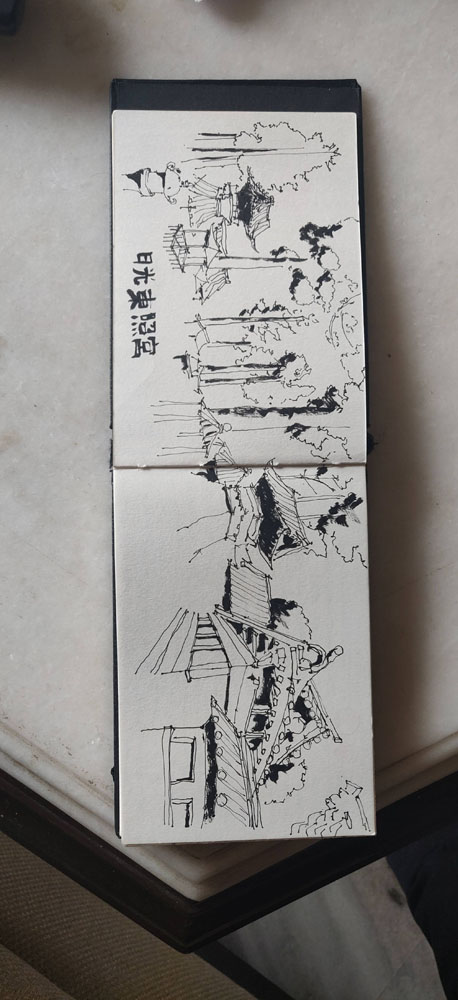 日光東照宮